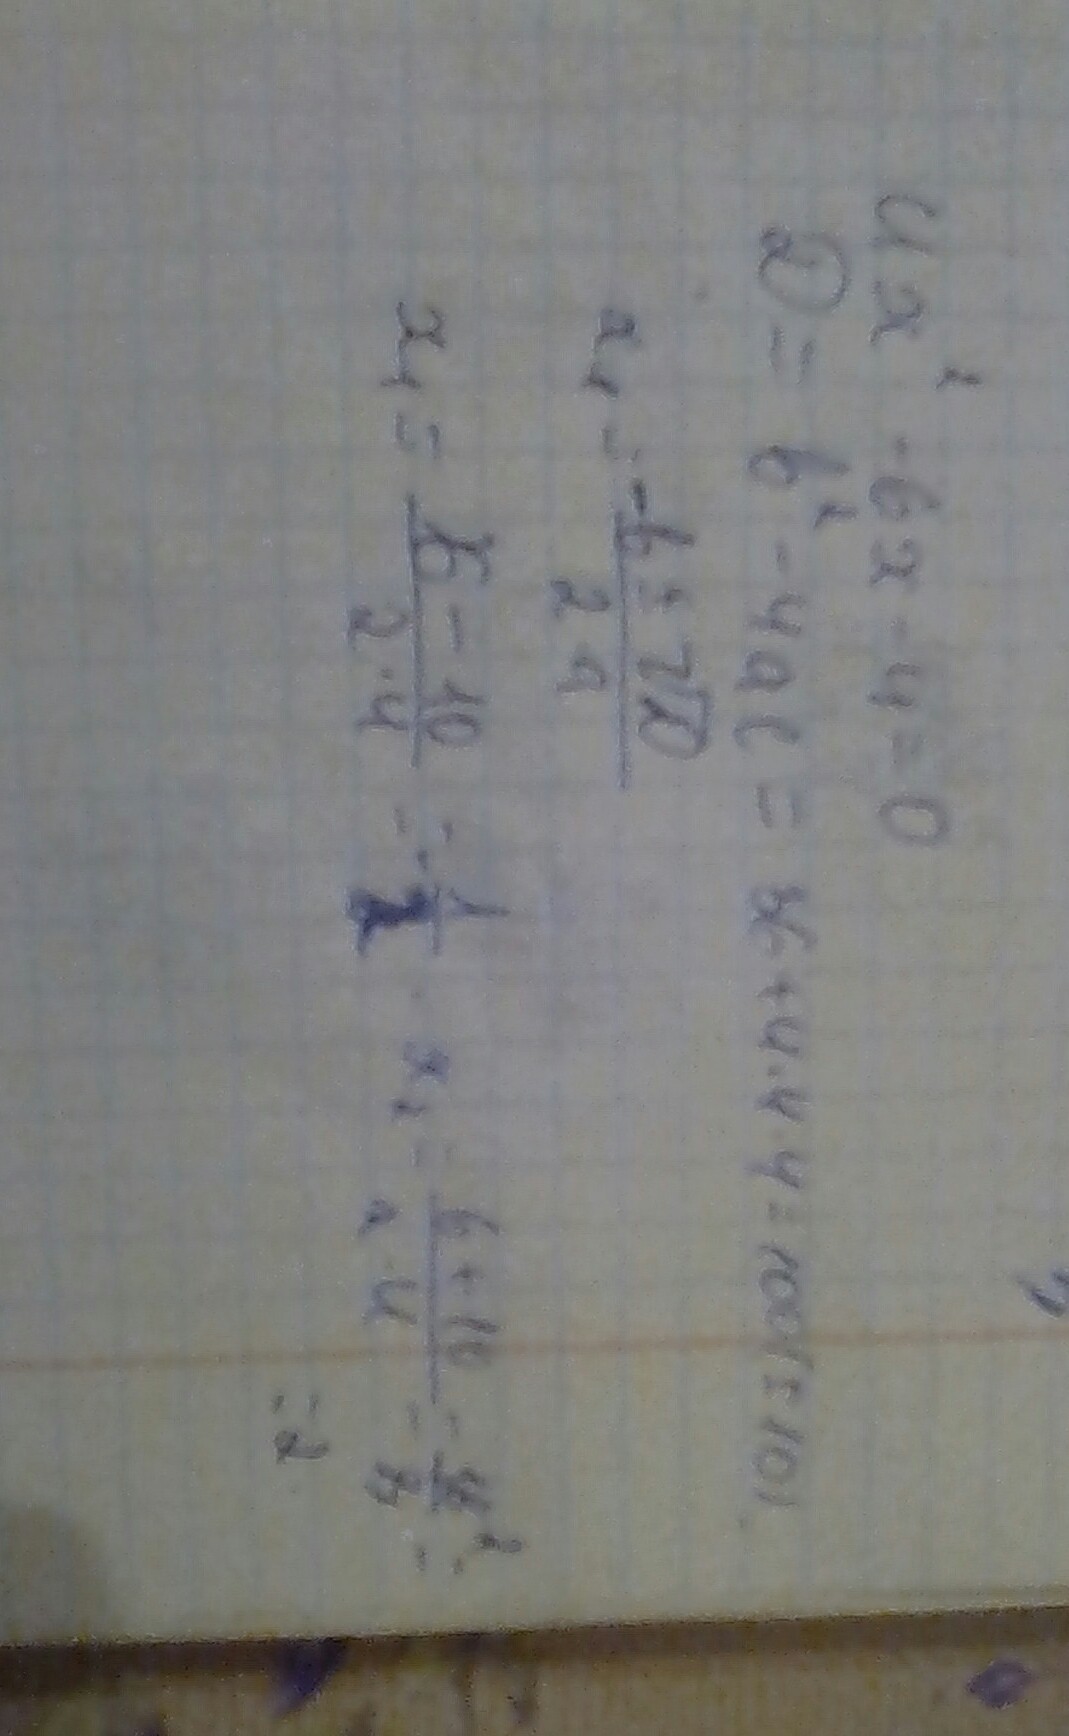 4x² - 6x - 4 = 0
D = b² - 4ac = 36 + 4·4·4 = 100 (±10)
x₁ = (-b ± √D) / 2a
x₁ = (6 - 10) / (2·4) = -1/2 x₂ = (6 + 10) / (2·4) =
= 2